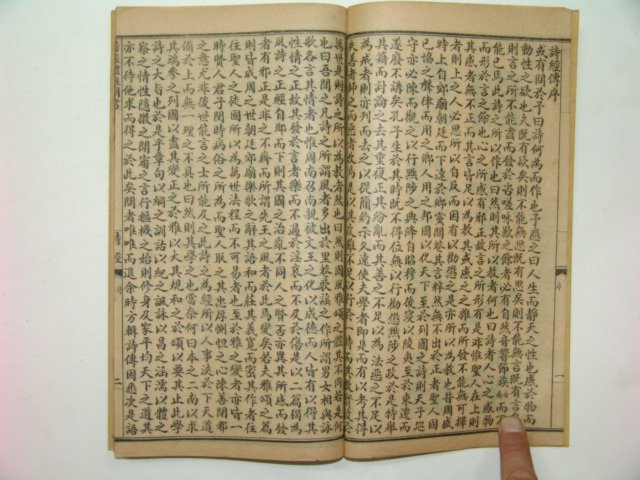 詩經傳序
或有問於予曰詩何為而作也予應之曰人生而靜天之性也感於物而
動性之欲也夫既有欲矣則不能無思既有思矣則不能無言既有言
則言之所不能盡而發於咨嗟咏歎之餘者必有自然音響節族而不
能已焉此詩之所以作也曰然則其所以教者何也曰詩者人心之感物
而形於言之餘也心之所感有邪正故言之所形有是非惟聖人在上則
其所感者無不正而其言皆足以為教其或感之之雜而所發不能無可擇
者則上之人必思所以自反而因有以勸懲之是亦所以為教也昔周盛
時上自郊廟朝廷而下達於鄉黨閭巷其言粹然無不出於正者聖人固
已協之聲律而用之鄉人用之邦國以化天下至於列國之詩則天子巡
守亦必陳而觀之以行黜陟之典降自昭穆而後寖以陵夷至於東遷而
遂廢不講矣孔子生於其時既不得位無以行勸懲黜陟之政於是特舉
其籍而討論之去其重復正其紛亂而其善之不足以為法惡之不足以
為戒者則亦刊而去之以從簡約示久遠使夫學者即是而有以考其得
失善者師之而惡者改焉是以其政雖不足以行於一時而其教實被於
萬世是則詩之所以為教者然也曰然則國風雅頌之體其不同若是何
也曰吾聞之凡詩之所謂風者多出於里巷歌謠之作所謂男女相與詠
歌各言其情者也惟周南召南親被文王之化以成德而人皆有以得其
性情之正故其發於言者樂而不過於淫哀而不及於傷是以二篇獨為
風詩之正經自邶而下則其國之治亂不同人之賢否亦異其所感而發
者有邪正是非之不齊而所謂先王之風者於此焉變矣若夫雅頌之篇
則皆成周之世朝廷郊廟樂歌之辭其語和而莊其義寬而密其作者往
往聖人之徒固所以為萬世法程而不可易者也至於雅之變者亦皆一
時賢人君子閔時病俗之所為而聖人取之其忠厚惻怛之心陳善閉邪
之意尤非後世能言之士所能及之此詩之為經所以人事浹於下天道
備於上而無一理之不具也曰然則其學之也當奈何曰本之二南以求
其端參之列國以盡其變正之於雅以大其規和之於頌以要其止此學
詩之大旨也於是乎章句以綱之訓詁以紀之諷詠以昌之涵濡以體之
察之情性隱微之間審之言行樞機之始則修身及家平均天下之道其
亦不待他求而得之於此矣問者唯唯而退余時方輯詩傳因悉次是語
詩經
序
一
二